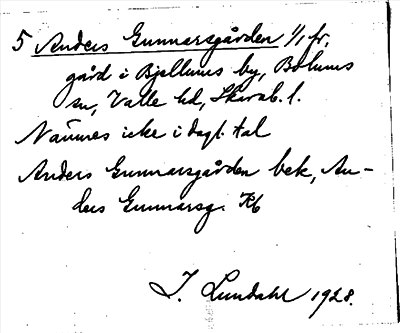 5 Anders Gunnarsgården 1/1 fr,
gård i Bjellums by, Bolums
sn, Valle hd, Skarab. l.
Namnes icke i dagl. tal
Anders Gunnarsgården bek, An-
ders Gunnarsg. Kb
I. Lundahl 1928.